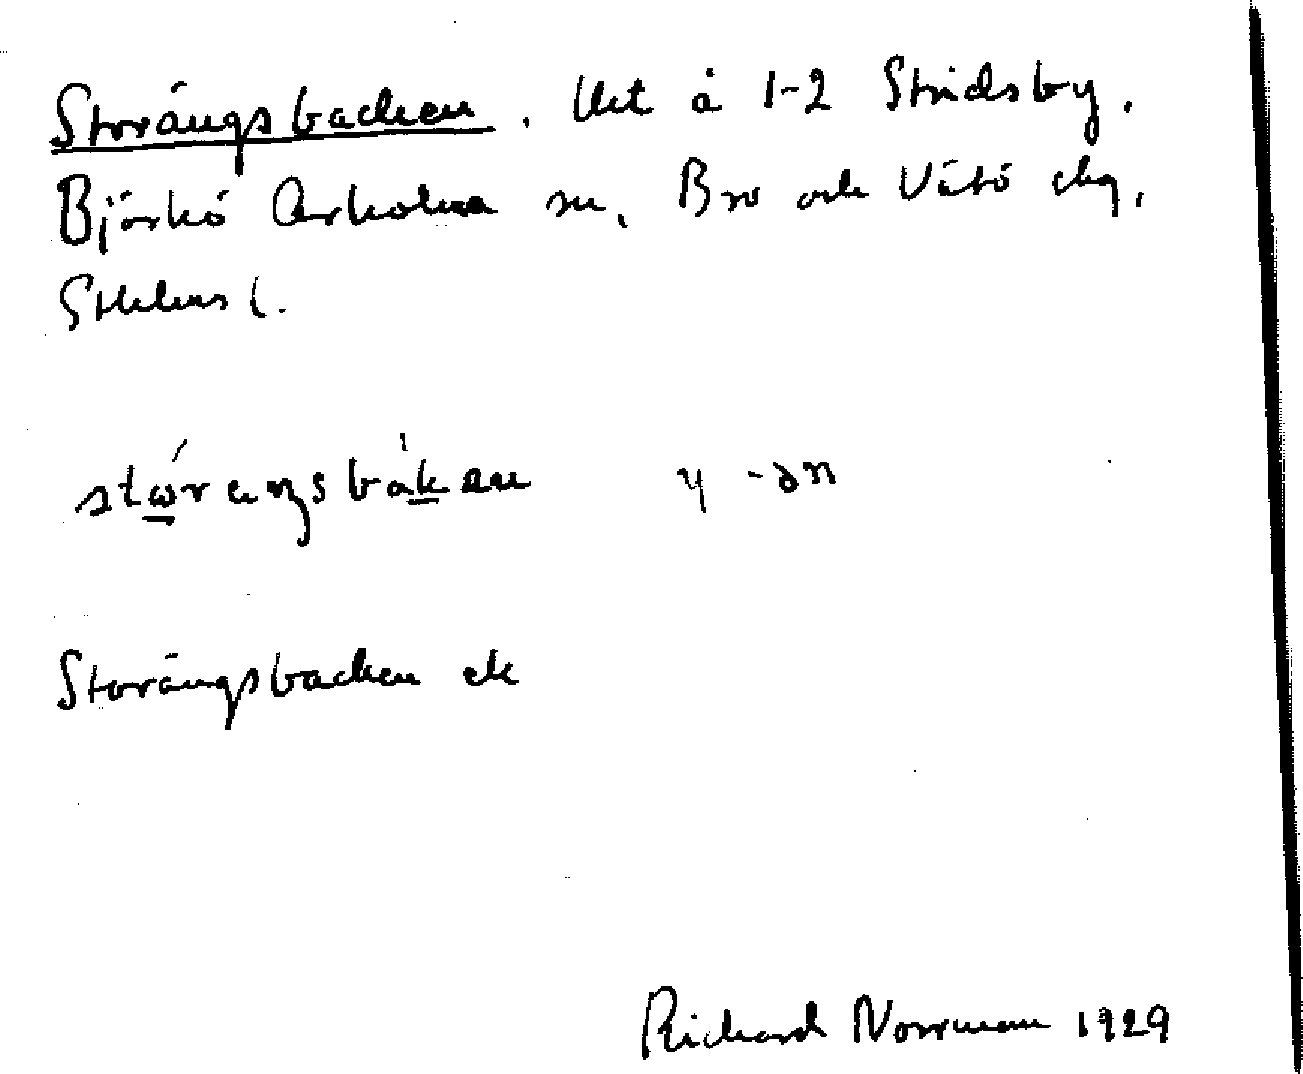 Storängsbacken. Utst å 1-2 Stridsby,
Björkö Arholma sn, Bro och Vätö chg,
Sthlms l.
stώ̱raŋsbàk̲an y -ən
Storängsbacken ek
Richard Norrman 1929